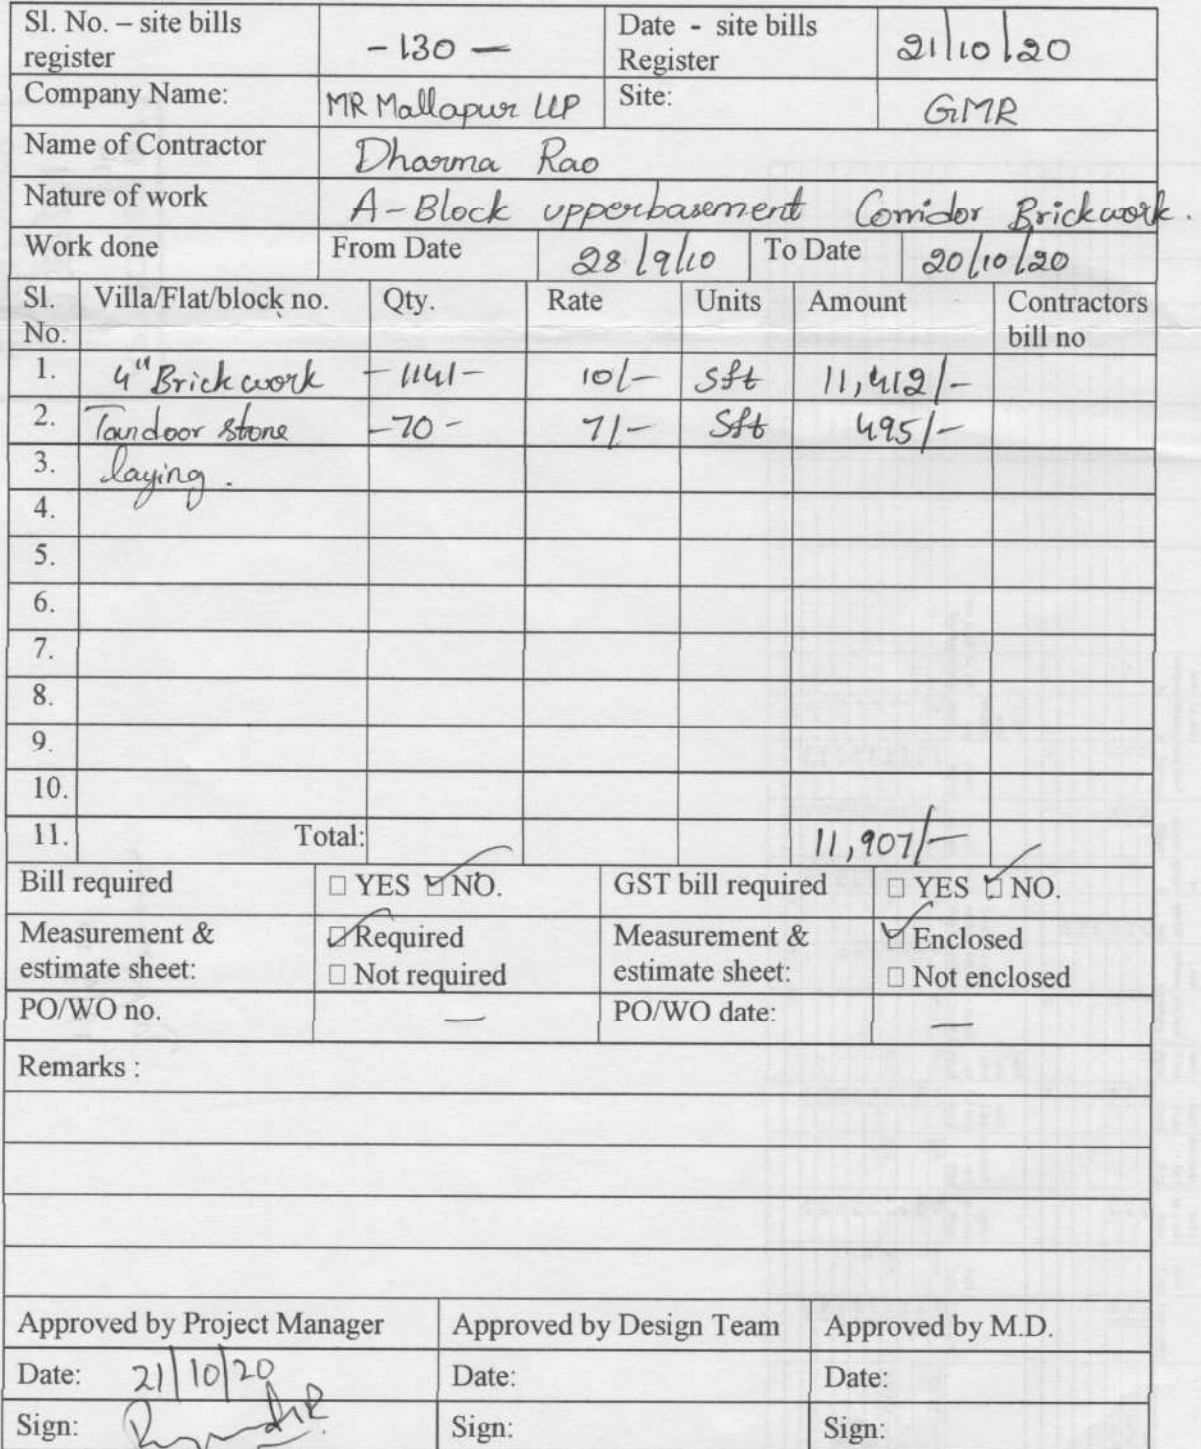 Sl. No. – site bills register -130- Date - site bills Register 21/10/20
Company Name: MR Mallapur LLP Site: GMR
Name of Contractor Dharma Rao
Nature of work A-Block upperbasement Corridor Brickwork.
Work done From Date 28/9/10 To Date 20/10/20
Sl. No. Villa/Flat/block no. Qty. Rate Units Amount Contractors bill no
1. 4" Brickwork -1141- 10/- Sft 11,412/-
2. Tandoor stone -70- 7/- Sft 495/-
3. laying.
4.
5.
6.
7.
8.
9.
10.
11. Total: 11,907/-
Bill required □ YES ☑ NO. GST bill required □ YES ☑ NO.
Measurement & estimate sheet: ☑ Required □ Not required Measurement & estimate sheet: ☑ Enclosed □ Not enclosed
PO/WO no. — PO/WO date: —
Remarks :
Approved by Project Manager Approved by Design Team Approved by M.D.
Date: 21/10/20 Date: Date:
Sign: Sign: Sign: